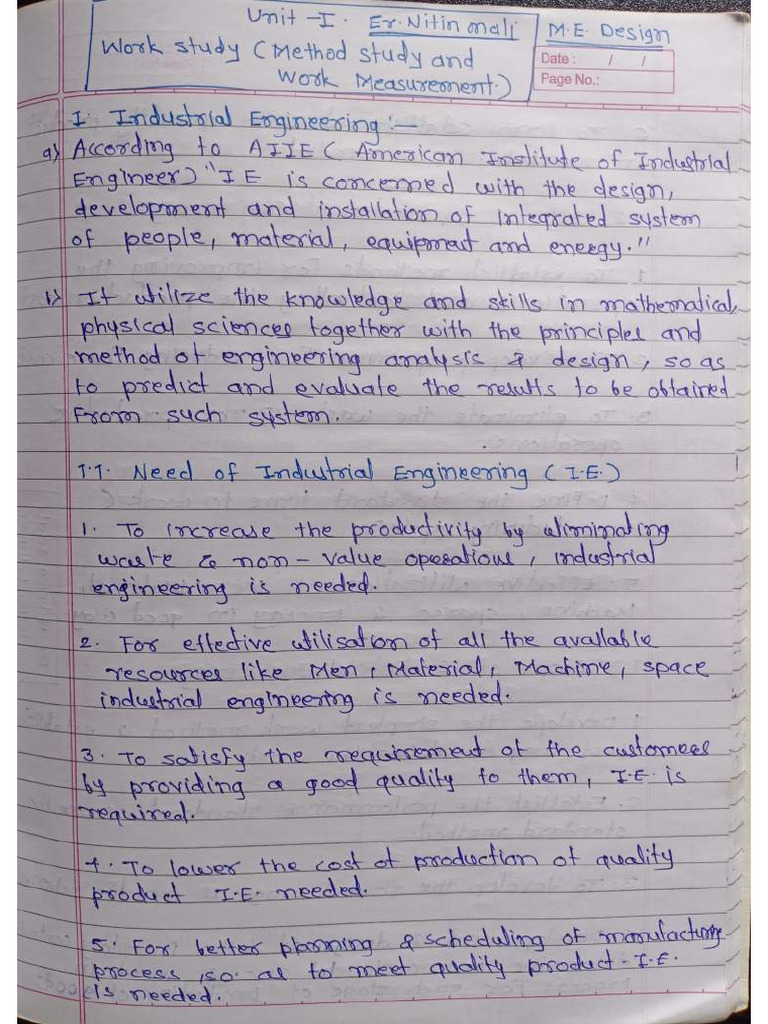 Unit - I. Er. Nitin mali
M.E. Design
Work study (Method study and
Work Measurement.)
Date : / /
Page No.:
I. Industrial Engineering :-
a) According to AIIE ( American Institute of Industrial
Engineer) "IE is concerned with the design,
development and installation of integrated system
of people, material, equipment and energy."
b) It utilize the knowledge and skills in mathematical,
physical sciences together with the principles and
method of engineering analysis & design, so as
to predict and evaluate the results to be obtained
from such system.
1.1. Need of Industrial Engineering (I.E.)
1. To increase the productivity by eliminating
waste & non-value operations, industrial
engineering is needed.
2. For effective utilisation of all the available
resources like Men, Material, Machine, space
industrial engineering is needed.
3. To satisfy the requirement of the customers
by providing a good quality to them, I.E. is
required.
4. To lower the cost of production of quality
product I.E. needed.
5. For better planning & scheduling of manufacturing
process, so as to meet quality product. I.E.
is needed.